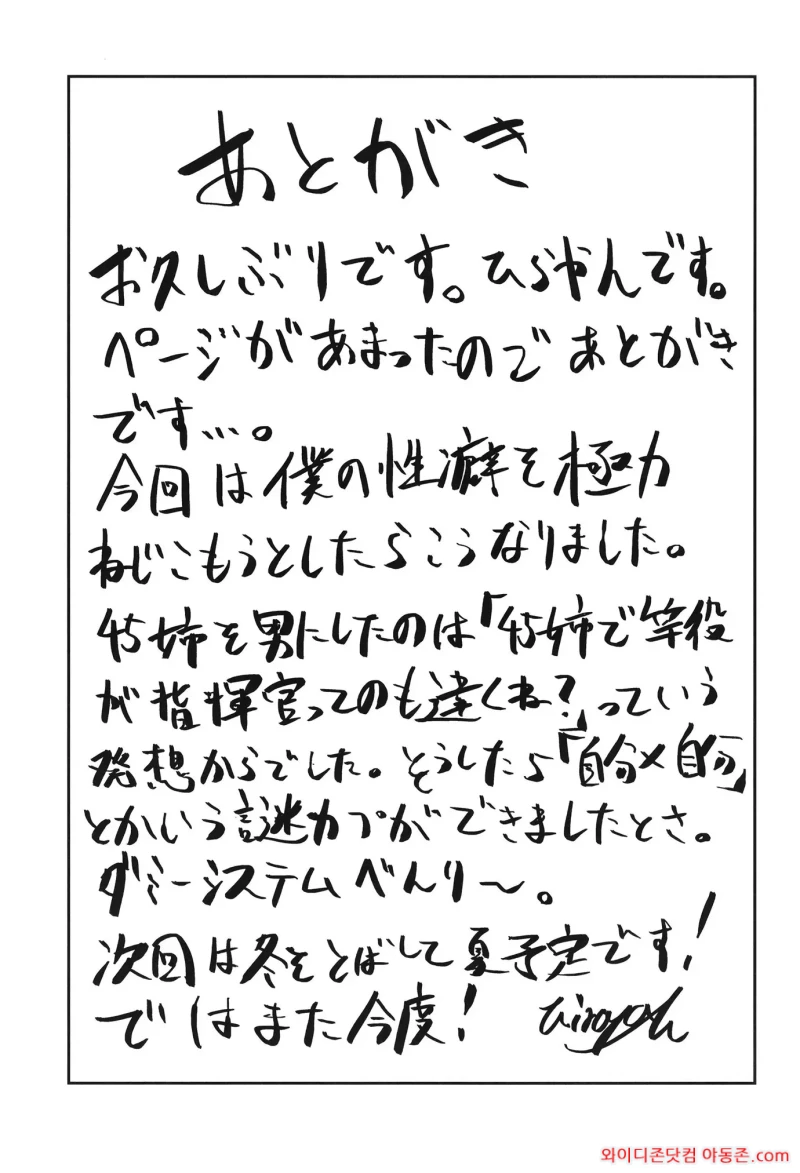 あとがき
お久しぶりです。ひらやんです。
ページがあまったのであとがき
です…。
今回は僕の性癖を極力
ねじこもうとしたらこうなりました。
45姉を男にしたのは「45姉で竿役
が指揮官ってのも違くね?」っていう
発想からでした。そうしたら「自分×自分」
とかいう謎カプができましたとさ。
ダミーシステムべんり〜。
次回は冬をとばして夏予定です!
ではまた今度!
와이디존닷컴 아동존.com